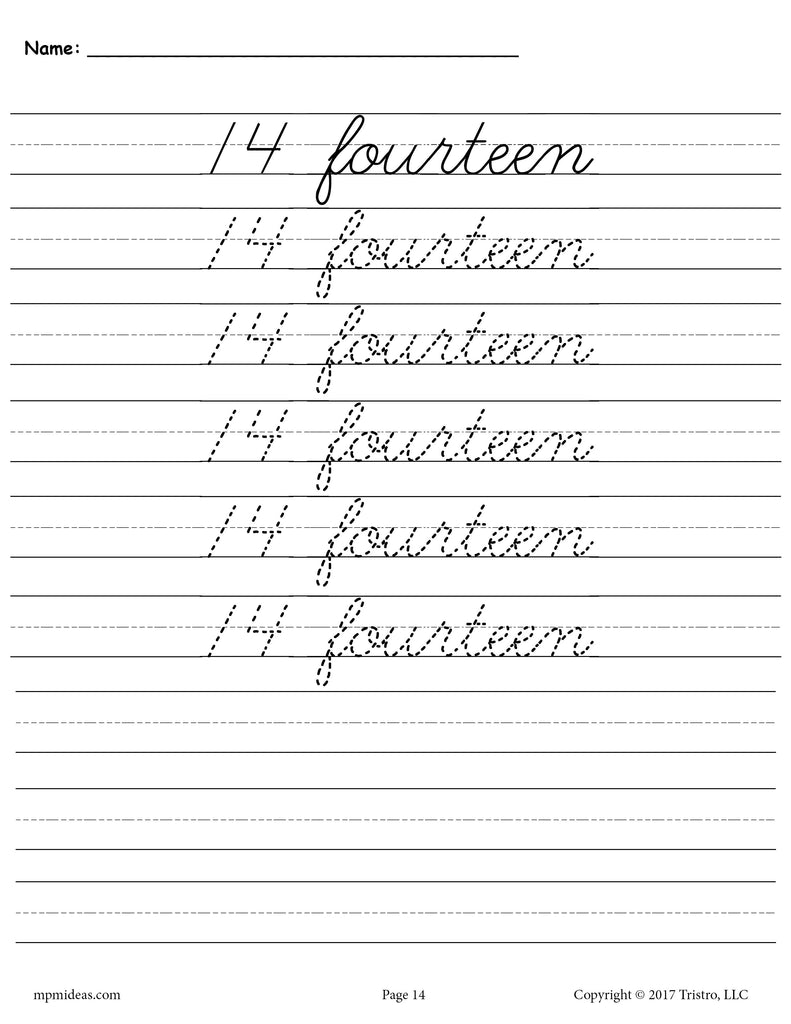 Name:
14 fourteen
14 fourteen
14 fourteen
14 fourteen
14 fourteen
14 fourteen
mpmideas.com Page 14 Copyright © 2017 Tristro, LLC